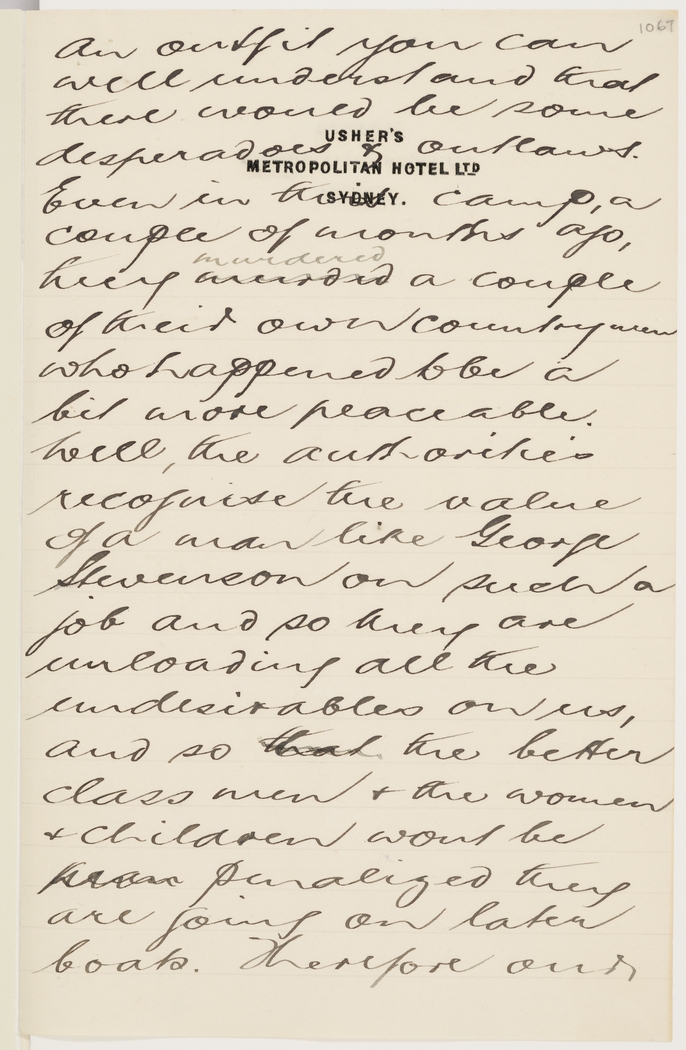 1067
an outfit you can
well understand that
there would be some
USHER'S
desperadoes & outlaws.
METROPOLITAN HOTEL LTD
SYDNEY.
Even in this camp, a
couple of months ago,
murdered
they murded a couple
of their own countrymen
who happened to be a
bit more peaceable.
Well, the authorities
recognise the value
of a man like George
Stevenson on such a
job and so they are
unloading all the
undesirables on us,
and so that the better
class men & the women
& children wont be
penalized they
are going on later
boats. Therefore our